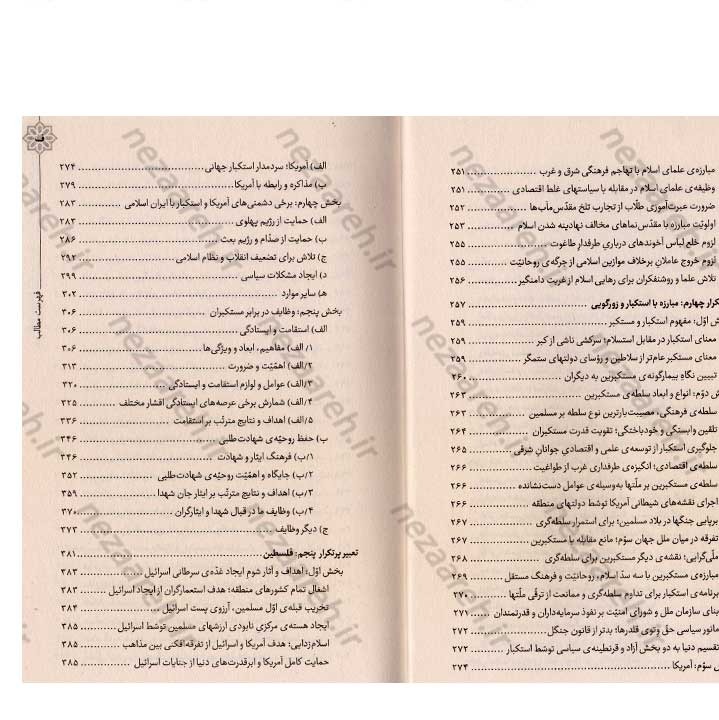 مبارزه‌ی علمای اسلام با تهاجم فرهنگی شرق و غرب ۲۵۱
وظیفه‌ی علمای اسلام در مقابله با سیاستهای غلط اقتصادی ۲۵۱
ضرورت عبرت‌آموزی طلّاب از تجارب تلخ مقدّس‌مآب‌ها ۲۵۲
اولویّت مبارزه با مقدّس‌نماهای مخالف نهادینه شدن اسلام ۲۵۳
لزوم خلع لباس آخوندهای درباریِ طرفدارِ طاغوت ۲۵۵
لزوم خروج عاملان برخلاف موازین اسلامی از جرگه‌ی روحانیّت ۲۵۵
تلاش علما و روشنفکران برای رهایی اسلام از غربت دامنگیر ۲۵۶
کرار چهارم: مبارزه با استکبار و زورگویی ۲۵۷
ش اوّل: مفهوم استکبار و مستکبر ۲۵۹
معنای استکبار در مقابل استسلام؛ سرکشی ناشی از کبر ۲۵۹
معنای مستکبر عام‌تر از سلاطین و رؤسای دولتهای ستمگر ۲۵۹
تبیین نگاهِ بیمارگونه‌ی مستکبرین به دیگران ۲۶۰
ش دوّم: انواع و ابعاد سلطه‌ی مستکبرین ۲۶۳
سلطه‌ی فرهنگی، مصیبت‌بارترین نوع سلطه بر مسلمین ۲۶۳
تلقین وابستگی و خودباختگی؛ تقویت قدرت مستکبران ۲۶۴
جلوگیری استکبار از توسعه‌ی علمی و اقتصادیِ جوانانِ شرقی ۲۶۵
سلطه‌ی اقتصادی؛ انگیزه‌ی طرفداری غرب از طواغیت ۲۶۶
سلطه‌ی مستکبرین بر ملّتها به‌وسیله‌ی عوامل دست‌نشانده ۲۶۶
اجرای نقشه‌های شیطانی آمریکا توسّط دولتهای منطقه ۲۶۶
برپایی جنگها در بلاد مسلمین؛ برای استمرار سلطه‌گری ۲۶۷
تفرقه در میان ملل جهان سوّم؛ مانع مقابله با مستکبرین ۲۶۷
ملّی‌گرایی؛ نقشه‌ی دیگر مستکبرین برای سلطه‌گری ۲۶۸
مبارزه‌ی مستکبرین با سه سدّ اسلام، روحانیّت و فرهنگ مستقل ۲۶۹
برنامه‌ی استکبار برای تداوم سلطه‌گری و ممانعت از ترقّی ملّتها ۲۷۰
بنای سازمان ملل و شورای امنیّت بر نفوذ سرمایه‌داران و قدرتمندان ۲۷۱
مانور سیاسی حقّ وتوی قلدرها؛ بدتر از قانون جنگل ۲۷۲
تقسیم دنیا به دو بخش آزاد و قرنطینه‌ی سیاسی توسّط استکبار ۲۷۲
ش سوّم: آمریکا ۲۷۴
الف) آمریکا؛ سردمدار استکبار جهانی ۲۷۴
ب) مذاکره و رابطه با آمریکا ۲۷۹
بخش چهارم: برخی دشمنی‌های آمریکا و استکبار با ایران اسلامی ۲۸۳
الف) حمایت از رژیم پهلوی ۲۸۳
ب) حمایت از صدّام و رژیم بعث ۲۸۶
ج) تلاش برای تضعیف انقلاب و نظام اسلامی ۲۹۲
د) ایجاد مشکلات سیاسی ۲۹۹
هـ) سایر موارد ۳۰۲
بخش پنجم: وظایف در برابر مستکبران ۳۰۶
الف) استقامت و ایستادگی ۳۰۶
۱/الف) مفاهیم، ابعاد و ویژگی‌ها ۳۰۶
۲/الف) اهمّیّت و ضرورت ۳۱۳
۳/الف) عوامل و لوازم استقامت و ایستادگی ۳۲۰
۴/الف) شمارش برخی عرصه‌های ایستادگی اقشار مختلف ۳۲۵
۵/الف) اهداف و نتایج مترتّب بر استقامت ۳۳۶
ب) حفظ روحیّه‌ی شهادت‌طلبی ۳۴۶
۱/ب) فرهنگ ایثار و شهادت ۳۴۶
۲/ب) جایگاه و اهمّیّت روحیّه‌ی شهادت‌طلبی ۳۵۲
۳/ب) اهداف و نتایج مترتّب بر ایثار جان شهدا ۳۵۹
۴/ب) وظایف ما در قبال شهدا و ایثارگران ۳۷۰
ج) دیگر وظایف ۳۷۳
تعبیر پرتکرار پنجم: فلسطین ۳۸۱
بخش اوّل: اهداف و آثار شوم ایجاد غدّه‌ی سرطانی اسرائیل ۳۸۳
اشغال تمام کشورهای منطقه؛ هدف استعمارگران از ایجاد اسرائیل ۳۸۳
تخریب قبله‌ی اوّل مسلمین، آرزوی پست اسرائیل ۳۸۴
ایجاد هسته‌ی مرکزیِ نابودی ارزشهای مسلمین توسّط اسرائیل ۳۸۵
اسلام‌زدایی؛ هدف آمریکا و اسرائیل از تفرقه‌افکنی بین مذاهب ۳۸۵
حمایت کامل آمریکا و ابرقدرت‌های دنیا از جنایات اسرائیل ۳۸۵
فهرست مطالب
nezaareh.ir